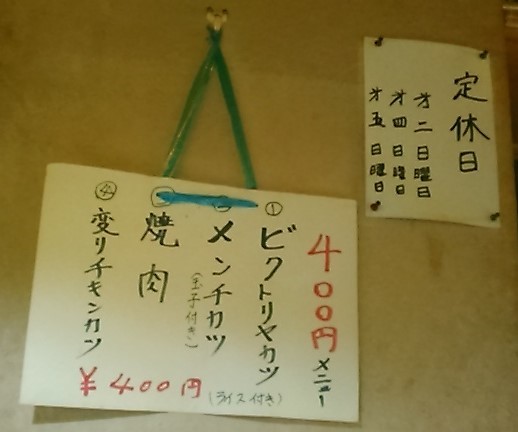 定休日
才二日曜日
才四日曜日
才五日曜日
400円メニュー
①ビクトリヤカツ
メンチカツ
(玉子付き)
焼肉
④変りチキンカツ
¥400円(ライス付き)